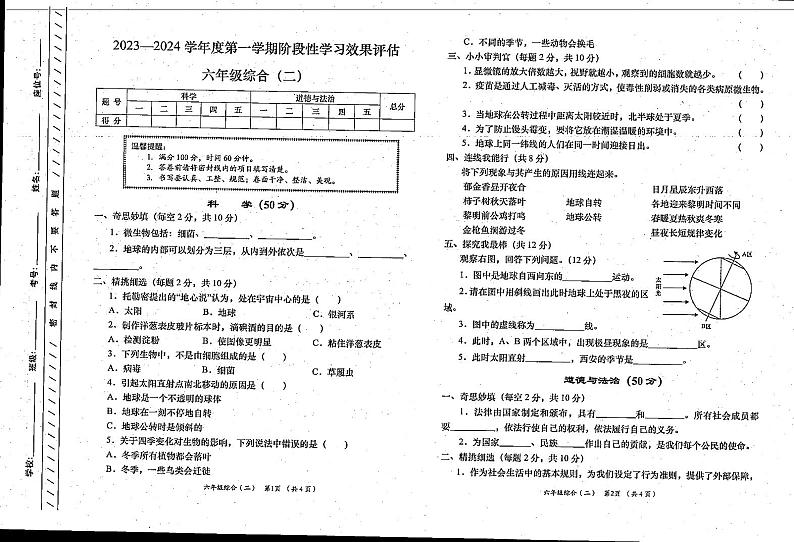 座位号：
姓名：
考号：
班级：
学校：
密 封 线 内 不 要 答 题
2023—2024 学年度第一学期阶段性学习效果评估
六年级综合（二）
题 号 科学 道德与法治 总分
一 二 三 四 五 一 二 三 四 五
得 分
温馨提醒：
1. 满分 100 分，时间 60 分钟。
2. 答卷前请将密封线内的项目填写清楚。
3. 书写要认真、工整、规范；卷面干净、整洁、美观。
科 学（50 分）
一、奇思妙填（每空 2 分，共 10 分）
1．微生物包括：细菌、________、________。
2．地球的内部可以划分为三层，从内到外依次是________、________、
________。
二、精挑细选（每题 2 分，共 10 分）
1．托勒密提出的“地心说”认为，处在宇宙中心的是（ ）
A．太阳 B．地球 C．银河系
2．制作洋葱表皮玻片标本时，滴碘酒的目的是（ ）
A．检测淀粉 B．使图像更明显 C．粘住洋葱表皮
3．下列生物中，不是由细胞组成的是（ ）
A．病毒 B．细菌 C．草履虫
4．引起太阳直射点南北移动的原因是（ ）
A．地球是一个不透明的球体
B．地球在一刻不停地自转
C．地球公转时是倾斜的
5．关于四季变化对生物的影响，下列说法中错误的是（ ）
A．冬季所有植物都会落叶
B．冬季，一些鸟类会迁徙
六年级综合（二） 第1页 （共 4 页）
C．不同的季节，一些动物会换毛
三、小小审判官（每题 2 分，共 10 分）
1．显微镜的放大倍数越大，视野就越小，观察到的细胞数就越少。（ ）
2．疫苗是通过人工减毒、灭活的方式，使毒性削弱或消失的各类病原微生物。
（ ）
3．当地球在公转过程中距离太阳较近时，北半球处于夏季。（ ）
4．为了防止馒头霉变，要将它放在潮湿温暖的环境中。（ ）
5．地球上同一纬线的人们在同一时间迎接日出。（ ）
四、连线我能行（共 8 分）
将下列现象与其产生的原因用线连起来。
郁金香昼开夜合 日月星辰东升西落
柿子树秋天落叶 地球自转 各地迎来黎明时间不同
黎明前公鸡打鸣 地球公转 春暖夏热秋爽冬寒
金枪鱼洄游过冬 昼夜长短规律变化
五、探究我最棒（共 12 分）
观察右图，回答下列问题。（12 分）
1．图中是地球自西向东的________运动。
2．请在图中用斜线画出此时地球上处于黑夜的区
域。
3．图中的虚线称为________线。
4．此时，A、B 两个区域中，出现极昼现象的是________区。
5．此时太阳直射________，西安的季节是________。
太阳光
A区
B区
道德与法治（50 分）
一、奇思妙填（每空 2 分，共 10 分）
1．法律由国家制定和颁布，具有________和________。所有社会成员都
要________，依法行使自己的权利，依法履行自己的义务。
2．为国家______、民族______作出自己的贡献，是我们每个公民的使命。
二、精挑细选（每题 2 分，共 10 分）
1．作为社会生活中的基本规则，为我们设定了行为准则，提供了外部保障，
六年级综合（二） 第2页 （共 4 页）